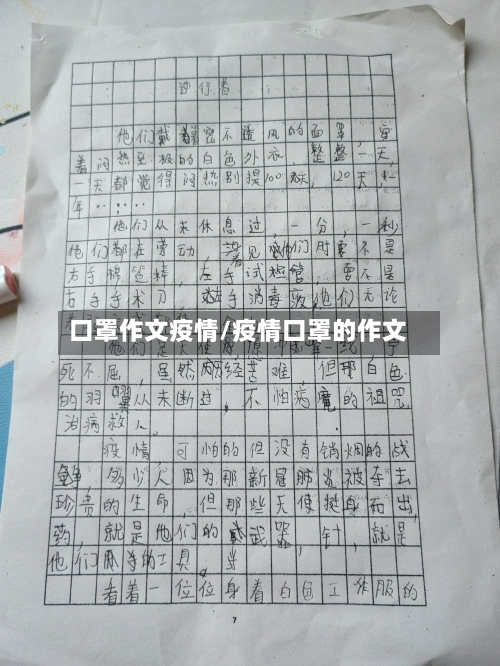 逆行者
他们戴着密不透风的面罩,穿
着闷热至极的白色外衣,整整一天,
一天都觉得闷热别提100天,120天,一
年……
他们从未休息过,一分,一秒
他们都在劳动,常见他们时要不是
右手棉签精,左手试检管,要不是
右手手术刀,左手消毒液他们无论
口罩作文疫情/疫情口罩的作文
死不屈,虽然历经苦难,但那白色
的羽翼从未断过,不怕病魔的祖咒,
治病救人。
疫情,可怕的但没有销烟的战
多少人因为那新冠肺炎被夺去
珍贵的生命,但那些天使挺身而出,
药,就是他们的武器,针,就是
他们的工具。
看着一位位身着白色工作服的
7